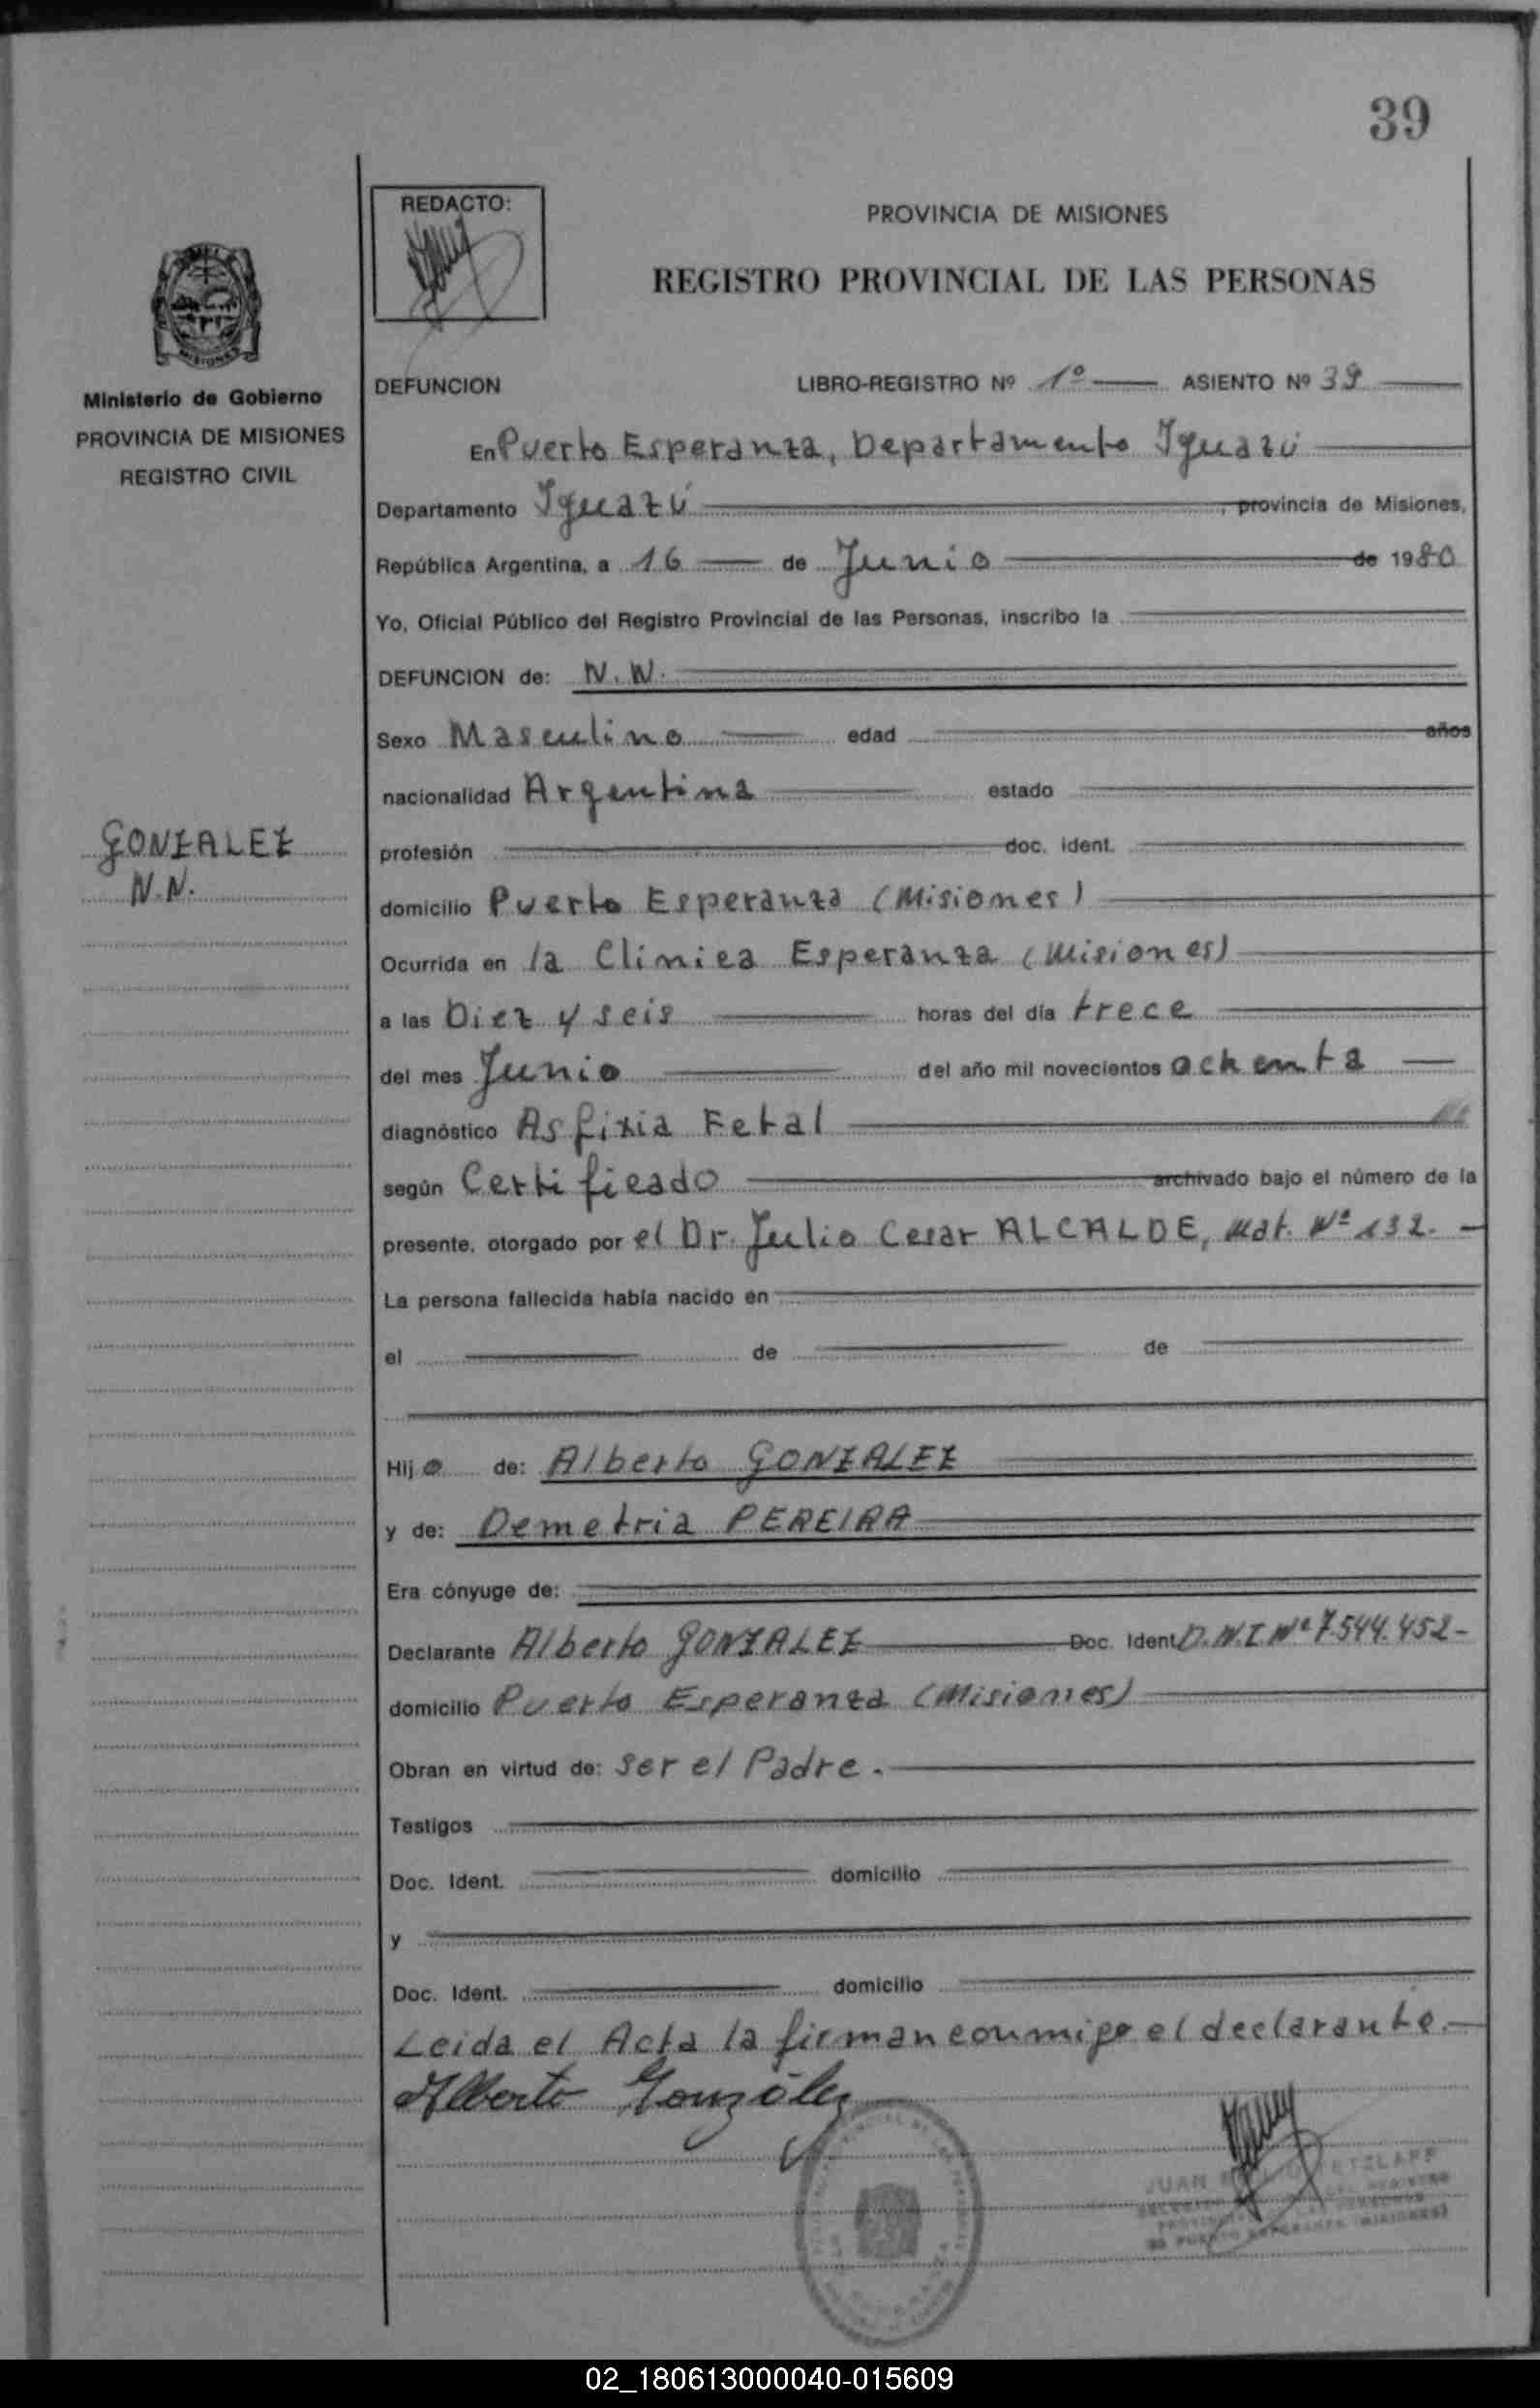 39
REDACTO:
PROVINCIA DE MISIONES
REGISTRO PROVINCIAL DE LAS PERSONAS
MISIONES
Ministerio de Gobierno
PROVINCIA DE MISIONES
REGISTRO CIVIL
DEFUNCION LIBRO-REGISTRO Nº 1º ASIENTO Nº 39
En Puerto Esperanza, Departamento Iguazú
Departamento Iguazú, provincia de Misiones,
República Argentina, a 16 de Junio de 1980
Yo, Oficial Público del Registro Provincial de las Personas, inscribo la
DEFUNCION de: N.N.
Sexo Masculino edad años
nacionalidad Argentina estado
GONZALEZ
N.N.
profesión doc. ident.
domicilio Puerto Esperanza (Misiones)
Ocurrida en la Clinica Esperanza (Misiones)
a las Diez y seis horas del día trece
del mes Junio del año mil novecientos ochenta
diagnóstico Asfixia Fetal
según Certificado archivado bajo el número de la
presente, otorgado por el Dr. Julio Cesar ALCALDE, Mat. Nº 132.
La persona fallecida había nacido en
el de de
Hijo de: Alberto GONZALEZ
y de: Demetria PEREIRA
Era cónyuge de:
Declarante Alberto GONZALEZ Doc. Ident. D.N.I. Nº 7.544.452-
domicilio Puerto Esperanza (Misiones)
Obran en virtud de: ser el Padre.
Testigos
Doc. Ident. domicilio
y
Doc. Ident. domicilio
Leida el Acta la firman conmigo el declarante.
Alberto González
JUAN
02_180613000040-015609